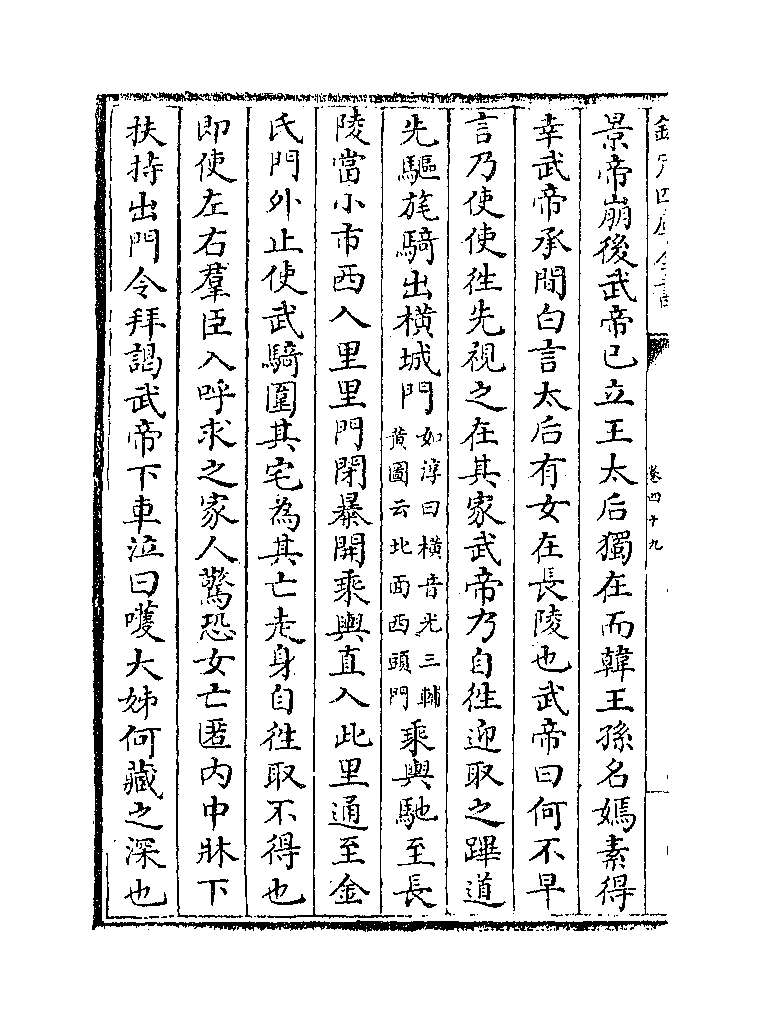 欽定四庫全書
卷四十九
景帝崩後武帝已立王太后獨在而韓王孫名嫣素得
幸武帝承間白言太后有女在長陵也武帝曰何不早
言乃使使徃先視之在其家武帝乃自徃迎取之蹕道
先驅旄騎出橫城門如淳曰橫音光三輔黄圖云北面西頭門乘輿馳至長
陵當小市西入里里門閉暴開乘輿直入此里通至金
氏門外止使武騎圍其宅為其亡走身自徃取不得也
即使左右羣臣入呼求之家人驚恐女亡匿内中牀下
扶持出門令拜謁武帝下車泣曰嚄大姊何藏之深也